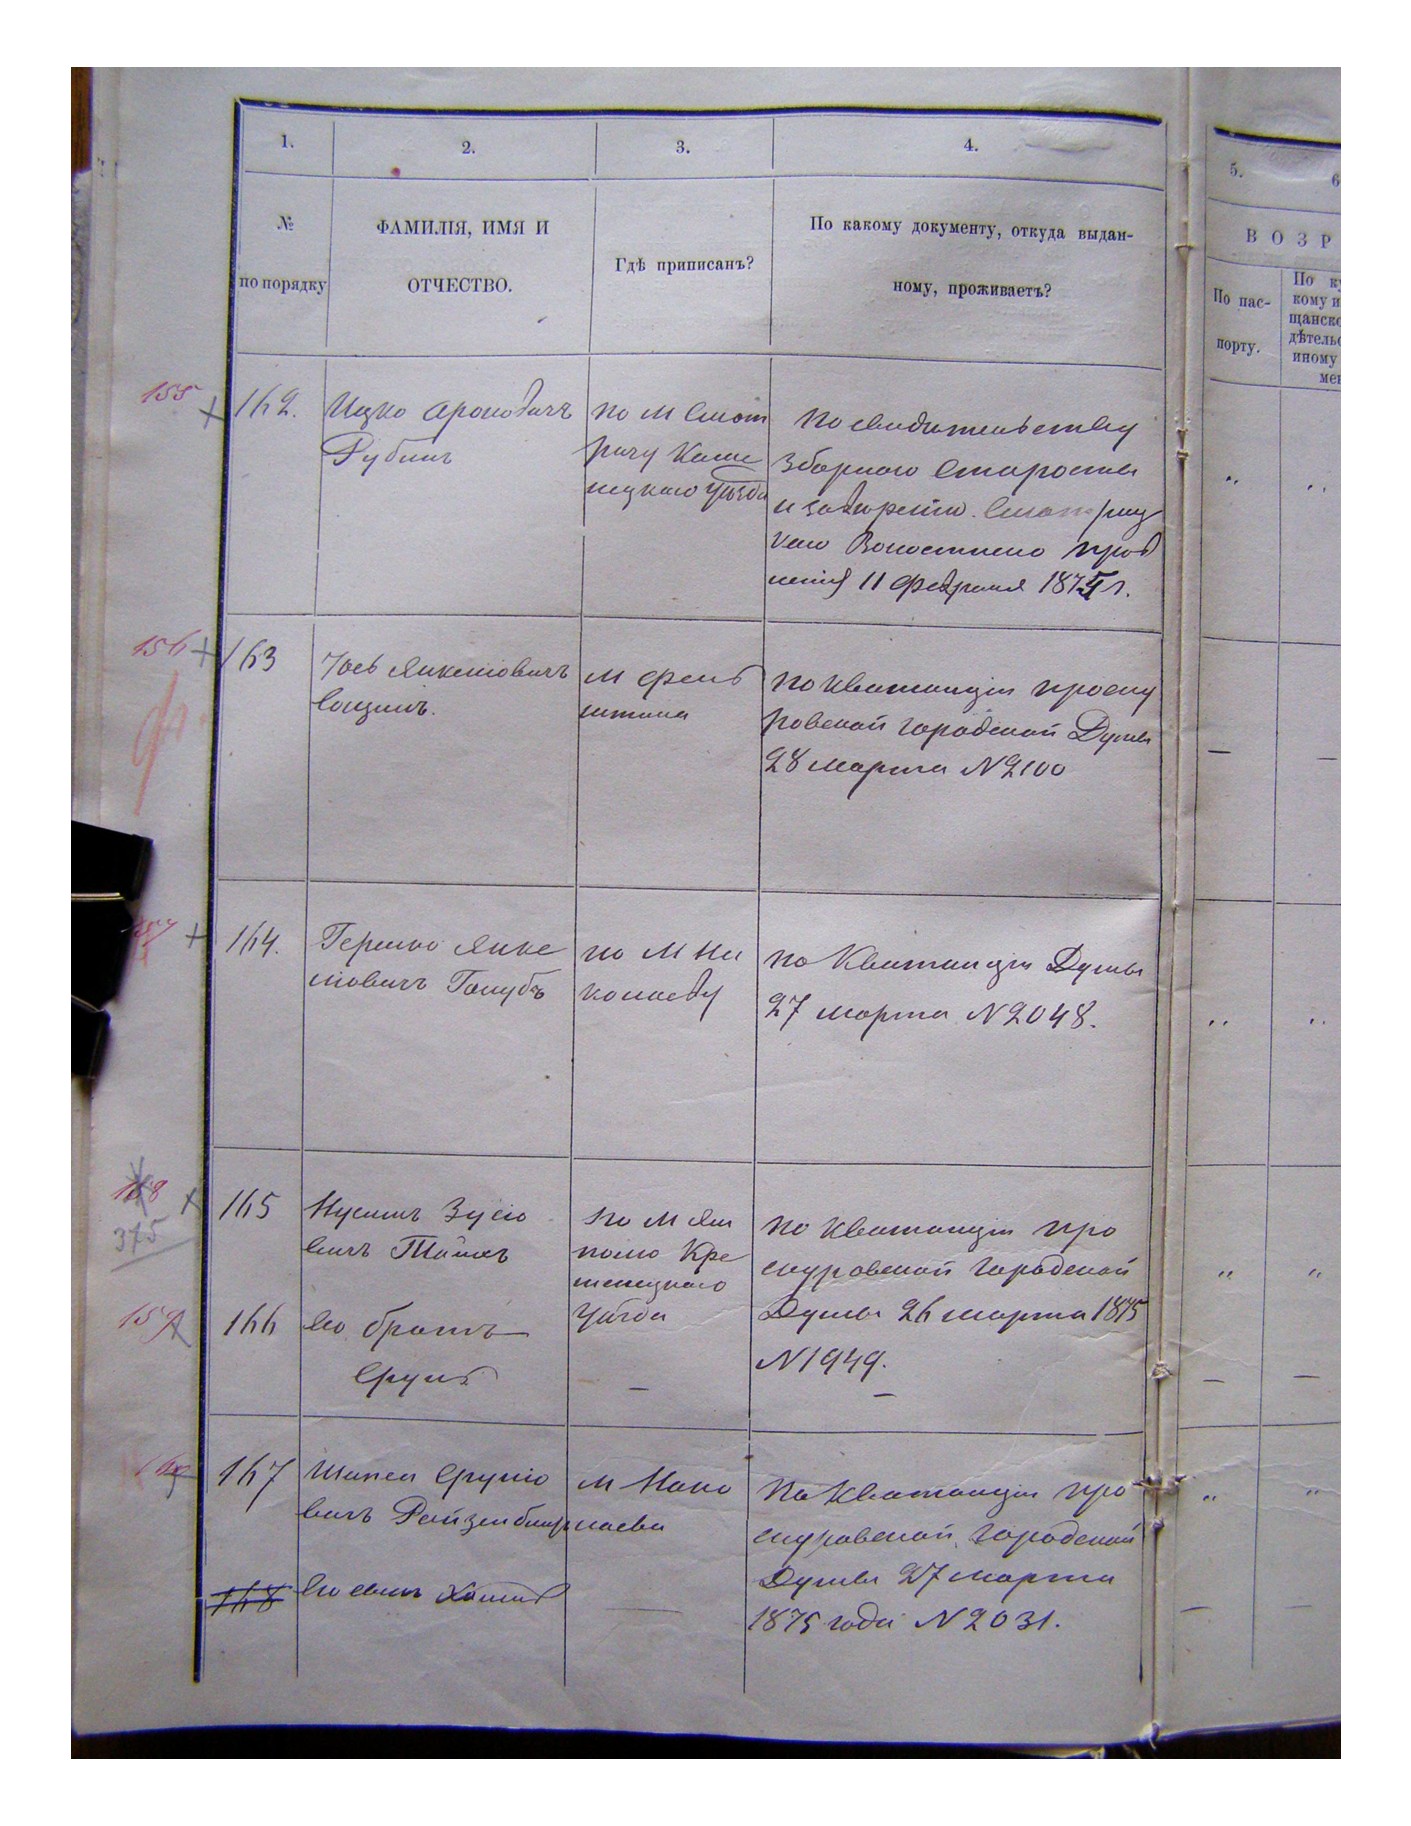 1.
2.
3.
4.
5.
6
№
по порядку
ФАМИЛІЯ, ИМЯ И
ОТЧЕСТВО.
Гдѣ приписанъ?
По какому документу, откуда выдан-
ному, проживаетъ?
ВОЗР
По пас-
порту.
По ку
кому и
щанско
дѣтельс
иному
мен
155
162.
Ицко Ароновичъ
Рубинъ
по м Смот
ричу Каме
нецкаго уѣзда
По свидѣтельству
Зборнаго Старосты
Смотриц
каго Волостнаго прав
ленія 11 февраля 1875 г.
156
163
Іось Янкелювичъ
м Фель
штина
по квитанціи проску
ровской городской Думы
28 марта N 2100
157
164.
Гершко Янке
лювичъ Голубъ
по м Ни
колаеву
по Квитанціи Думы
27 марта N 2048.
158
375
165
Нусинъ Зусіо
вичъ
по м Ям
полю Кре
менецкаго
уѣзда
по квитанціи про
скуровской городской
Думы 26 марта 1875
N 1949.
159
166
Его братъ
Сруль
160
167
Шапса Сруліо
вичъ
м Нико
лаева
По Квитанціи про
скуровской городской
Думы 27 марта
1875 года N 2031.
168
Его сынъ